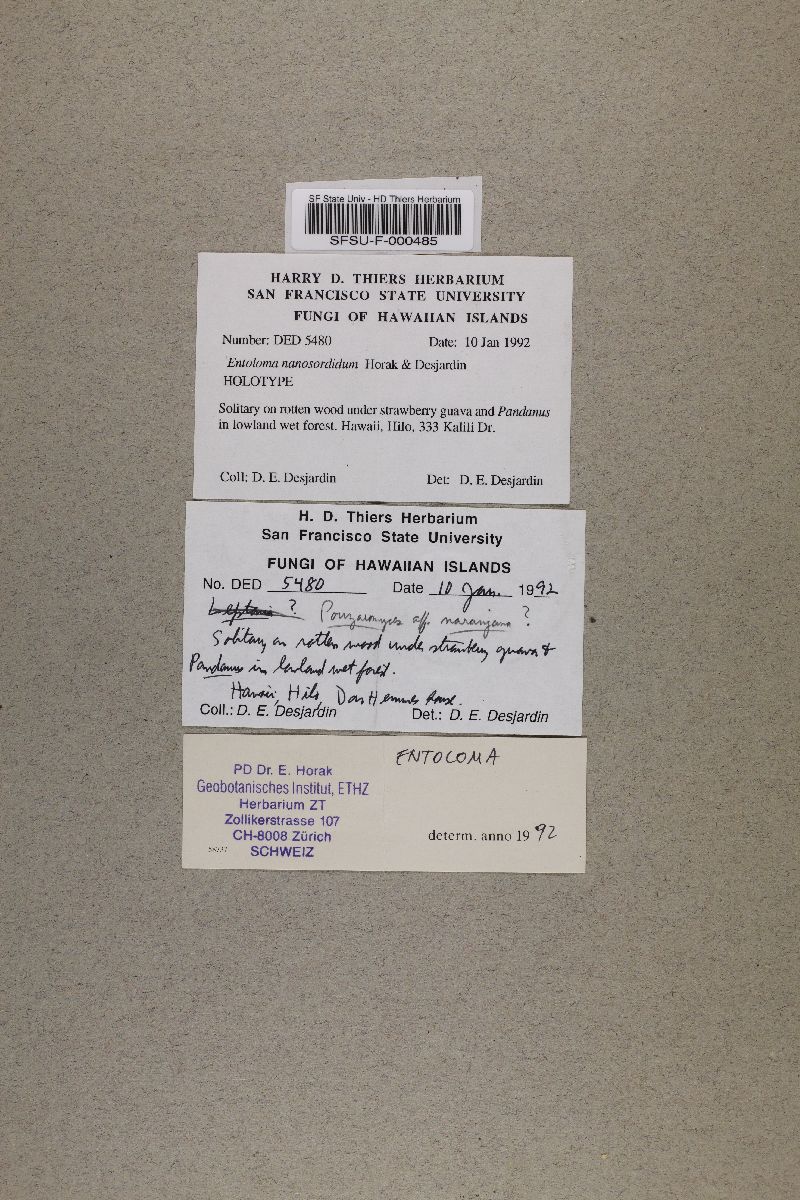 SF State Univ - HD Thiers Herbarium
SFSU-F-000485
HARRY D. THIERS HERBARIUM
SAN FRANCISCO STATE UNIVERSITY
FUNGI OF HAWAIIAN ISLANDS
Number: DED 5480 Date: 10 Jan 1992
Entoloma nanosordidum Horak & Desjardin
HOLOTYPE
Solitary on rotten wood under strawberry guava and Pandanus
in lowland wet forest. Hawaii, Hilo, 333 Kalili Dr.
Coll: D. E. Desjardin Det: D. E. Desjardin
H. D. Thiers Herbarium
San Francisco State University
FUNGI OF HAWAIIAN ISLANDS
No. DED 5480 Date 10 Jan. 1992
Leptonia ? Pouzaromyces aff. naranjana ?
Solitary on rotten wood under strawberry guava &
Pandanus in lowland wet forest.
Hawaii, Hilo, Don Hemmes house.
Coll.: D. E. Desjardin Det.: D. E. Desjardin
PD Dr. E. Horak
Geobotanisches Institut, ETHZ
Herbarium ZT
Zollikerstrasse 107
CH-8008 Zürich
SCHWEIZ
ENTOLOMA
determ. anno 1992